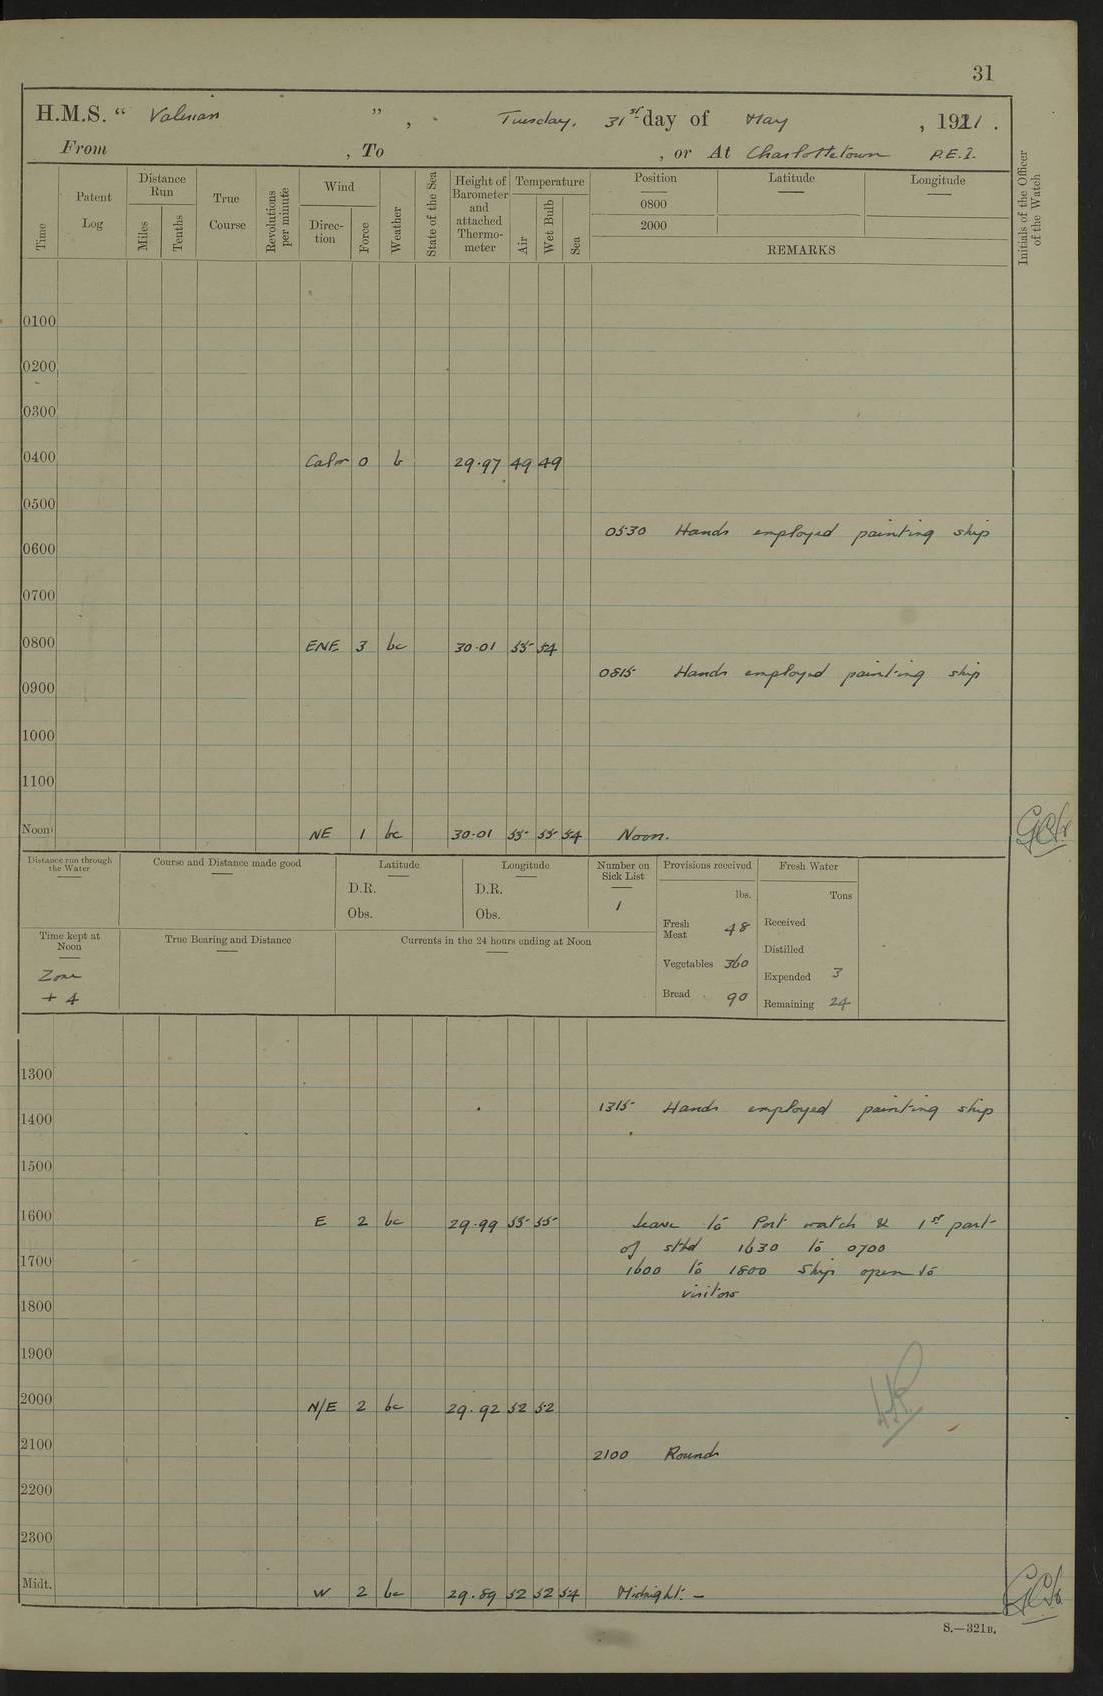 31
H.M.S. “ Valerian ” , Tuesday. 31st day of May , 1921 .
From , To , or At Charlottetown P.E.I.
Time
Patent Log
Distance Run
Miles
Tenths
True Course
Revolutions per minute
Wind
Direction
Force
Weather
State of the Sea
Height of Barometer and attached Thermometer
Temperature
Air
Wet Bulb
Sea
Position Latitude Longitude
0800
2000
REMARKS
Initials of the Officer of the Watch
0100
0200
0300
0400 Calm 0 b 29.97 49 49
0500
0530 Hands employed painting ship
0600
0700
0800 ENE 3 bc 30.01 55 54
0815 Hands employed painting ship
0900
1000
1100
Noon NE 1 bc 30.01 55 55 54 Noon.
Distance run through the Water
Course and Distance made good
Latitude
D.R.
Obs.
Longitude
D.R.
Obs.
Number on Sick List
1
Provisions received
lbs.
Fresh Meat 48
Vegetables 360
Bread 90
Fresh Water
Tons
Received
Distilled
Expended 3
Remaining 24
Time kept at Noon
Zone
+ 4
True Bearing and Distance
Currents in the 24 hours ending at Noon
1300
1315 Hands employed painting ship
1400
1500
1600 E 2 bc 29.99 55 55 Leave to Port watch & 1st part
of stbd 1630 to 0700
1700
1600 to 1800 Ship open to
visitors
1800
1900
2000 N/E 2 bc 29.92 52 52
2100
2100 Rounds
2200
2300
Midt. W 2 bc 29.89 52 52 54 Midnight. –
S.—321B.